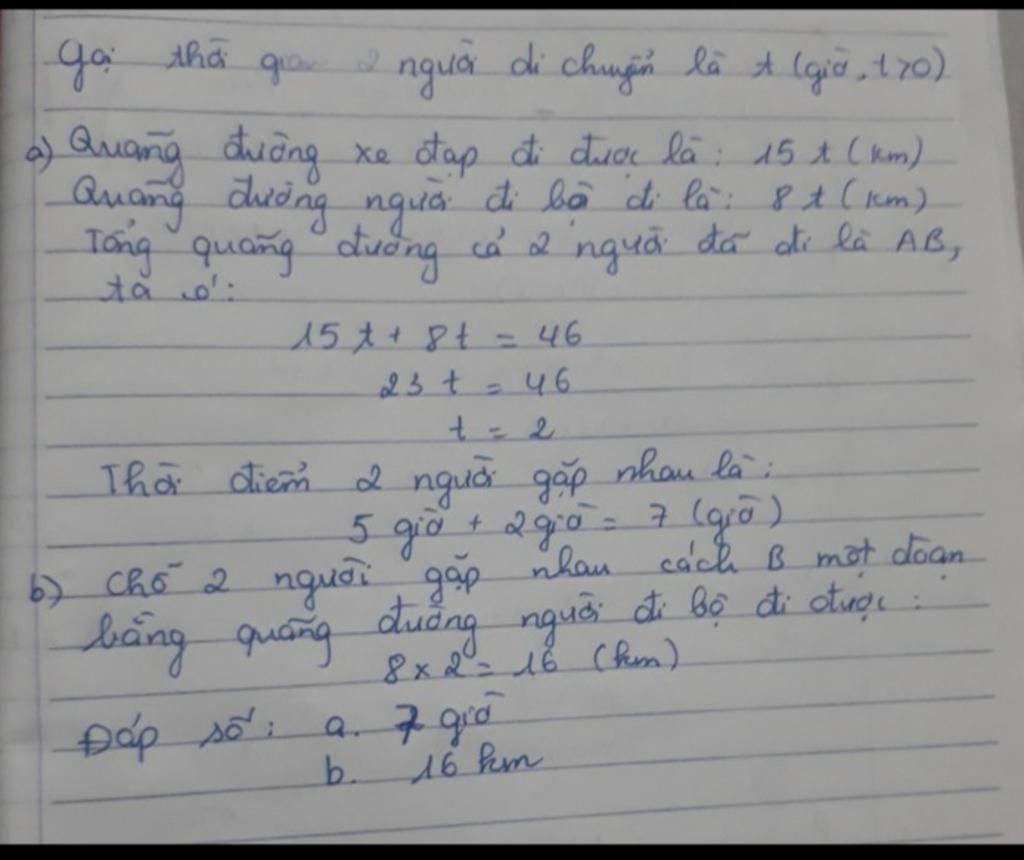 Gọi thời gian 2 người di chuyển là t (giờ, t>0)
a) Quãng đường xe đạp đi được là: 15 t (km)
Quãng đường người đi bộ đi là: 8 t (km)
Tổng quãng đường cả 2 người đã đi là AB,
ta có:
15 t + 8t = 46
23 t = 46
t = 2
Thời điểm 2 người gặp nhau là:
5 giờ + 2 giờ = 7 (giờ)
b) Chỗ 2 người gặp nhau cách B một đoạn
bằng quãng đường người đi bộ đi được:
8 x 2 = 16 (km)
Đáp số: a. 7 giờ
b. 16 km